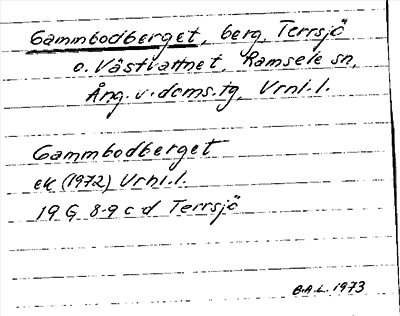 Gammbodberget, berg, Terrsjö
o. Västvattnet, Ramsele sn,
Ång. v. doms.tg, Vrnl.l.
Gammbodberget
ek (1972) Vrnl.l.
19 G 8-9 c-d Terrsjö
B.A.L. 1973